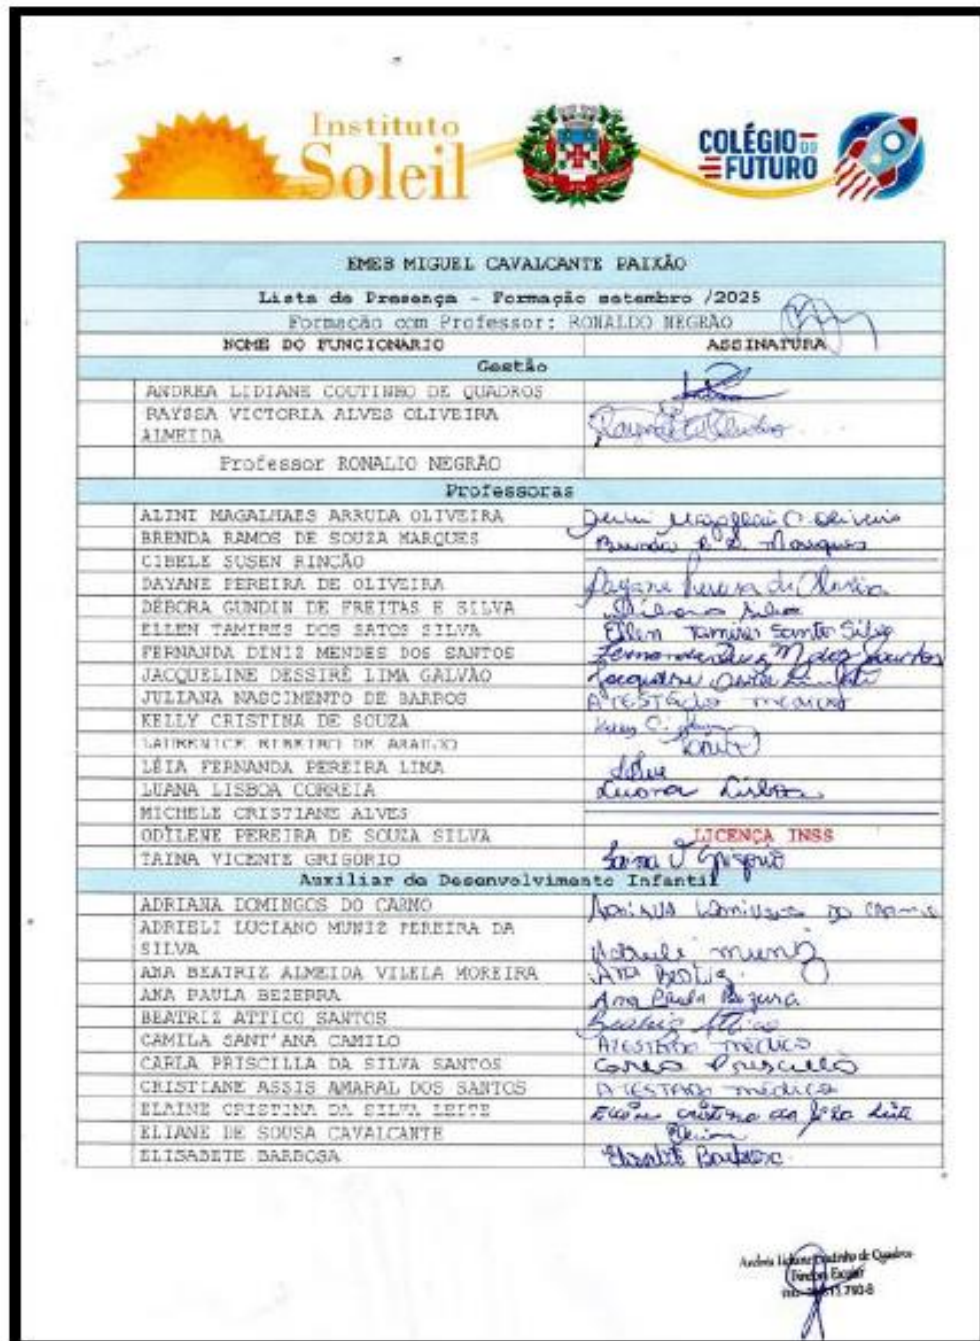 Instituto
Soleil
COLÉGIO DO
FUTURO
EMEB MIGUEL CAVALCANTE PAIXÃO
Lista de Presença - Formação setembro /2025
Formação com Professor: RONALDO NEGRÃO
NOME DO FUNCIONARIO ASSINATURA
Gestão
ANDREA LIDIANE COUTINHO DE QUADROS
RAYSSA VICTORIA ALVES OLIVEIRA
ALMEIDA
Professor RONALIO NEGRÃO
Professoras
ALINI MAGALHAES ARRUDA OLIVEIRA
BRENDA RAMOS DE SOUZA MARQUES
CIBELE SUSEN RINCÃO
DAYANE PEREIRA DE OLIVEIRA Dayane Pereira de Oliveira
DÉBORA GUNDIN DE FREITAS E SILVA Débora Silva
ELLEN TAMIRES DOS SATOS SILVA Ellen Tamires Santos Silva
FERNANDA DINIZ MENDES DOS SANTOS Fernanda Diniz M dos Santos
JACQUELINE DESSIRÊ LIMA GALVÃO
JULIANA NASCIMENTO DE BARROS Atestado médico
KELLY CRISTINA DE SOUZA
LAURENICE RIBEIRO DE ARAUJO
LÉIA FERNANDA PEREIRA LIMA
LUANA LISBOA CORREIA Luana Lisboa
MICHELE CRISTIANE ALVES
ODÍLENE PEREIRA DE SOUZA SILVA LICENÇA INSS
TAINA VICENTE GRIGORIO Taina V Grigorio
Auxiliar de Desenvolvimento Infantil
ADRIANA DOMINGOS DO CARMO Adriana Domingos do Carmo
ADRIELI LUCIANO MUNIZ PEREIRA DA
SILVA Adrieli Muniz
ANA BEATRIZ ALMEIDA VILELA MOREIRA Ana Beatriz
ANA PAULA BEZERRA Ana Paula Bezerra
BEATRIZ ATTICO SANTOS Beatriz Attico
CAMILA SANT'ANA CAMILO Atestado médico
CARLA PRISCILLA DA SILVA SANTOS Carla Priscilla
CRISTIANE ASSIS AMARAL DOS SANTOS Atestado médico
ELAINE CRISTINA DA SILVA LEITE Elaine Cristina da Silva Leite
ELIANE DE SOUSA CAVALCANTE Eliane
ELISABETE BARBOSA Elisabete Barbosa
Coutinho de Quadros
Escolar